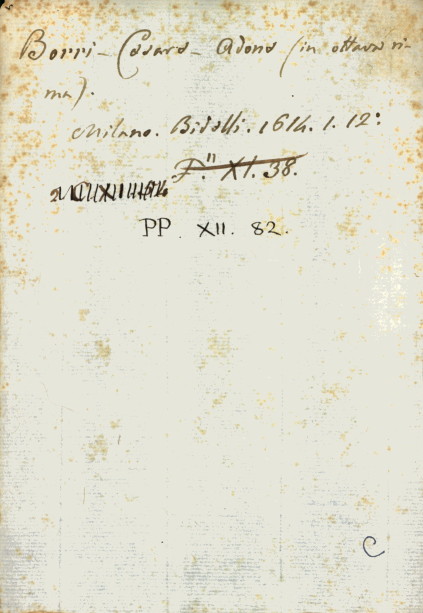 Borri - Cesare - Adone (in ottava ri-
ma).
Milano. Bidelli. 1614. 1. 12:
P." XI. 38.
PP. XII. 82.
C